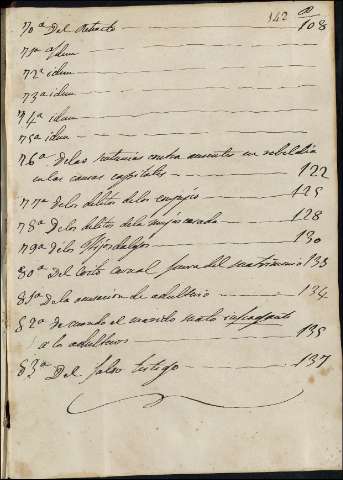 142 @
70ª Del Retracto 108
71ª Idem
72ª idem
73ª idem
74ª idem
75ª idem
76ª Delas contra ausentes en rebeldia
en las causas capitales 122
77ª Delos delitos delos 125
78ª Delos delitos dela 128
79ª Delos Hijosdalgos 130
80ª Del Coito carnal fuera del matrimonio 133
81ª De la acusacion de adulterio 134
82ª de cuando el marido mata
a los adulteros 135
83ª Del falso testigo 137